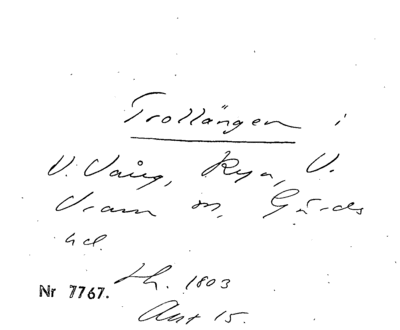 Trollängen i
V. Vång, Rya, V.
Vram m, Gärds
hd.
Lh. 1803
Nr 7767.
Akt 15.